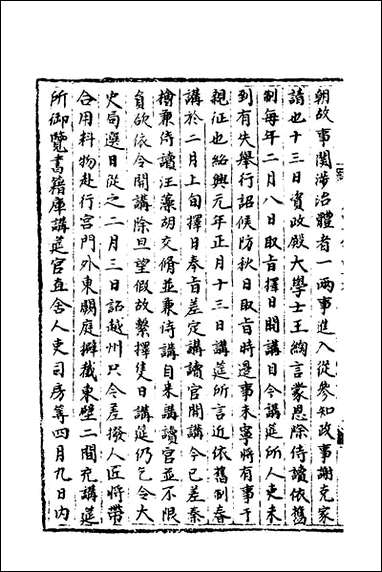 朝故事闗涉治體者一兩事進入從參知政事謝克家
請也十三日資政殿大學士王綯言蒙恩除侍讀依舊
制每年二月八日取㫖擇日開講日今講筵所人吏未
到有失舉行詔候防秋日取㫖時邊事未寧將有事于
親征也紹興元年正月十三日講筵所言近依舊制春
講於二月上旬擇日奉㫖差定講讀官開講今已差秦
檜兼侍讀汪藻胡交脩並兼侍講自來講讀官並不限
員欲依今開講除旦望假故繫擇隻日講筵仍乞令大
史局選日從之二月三日詔越州只令差撥人匠將帶
合用料物赴行宫門外東闕庭擗截東壁二間充講筵
所御覽書籍庫講筵官直舍人吏司房等四月九日内